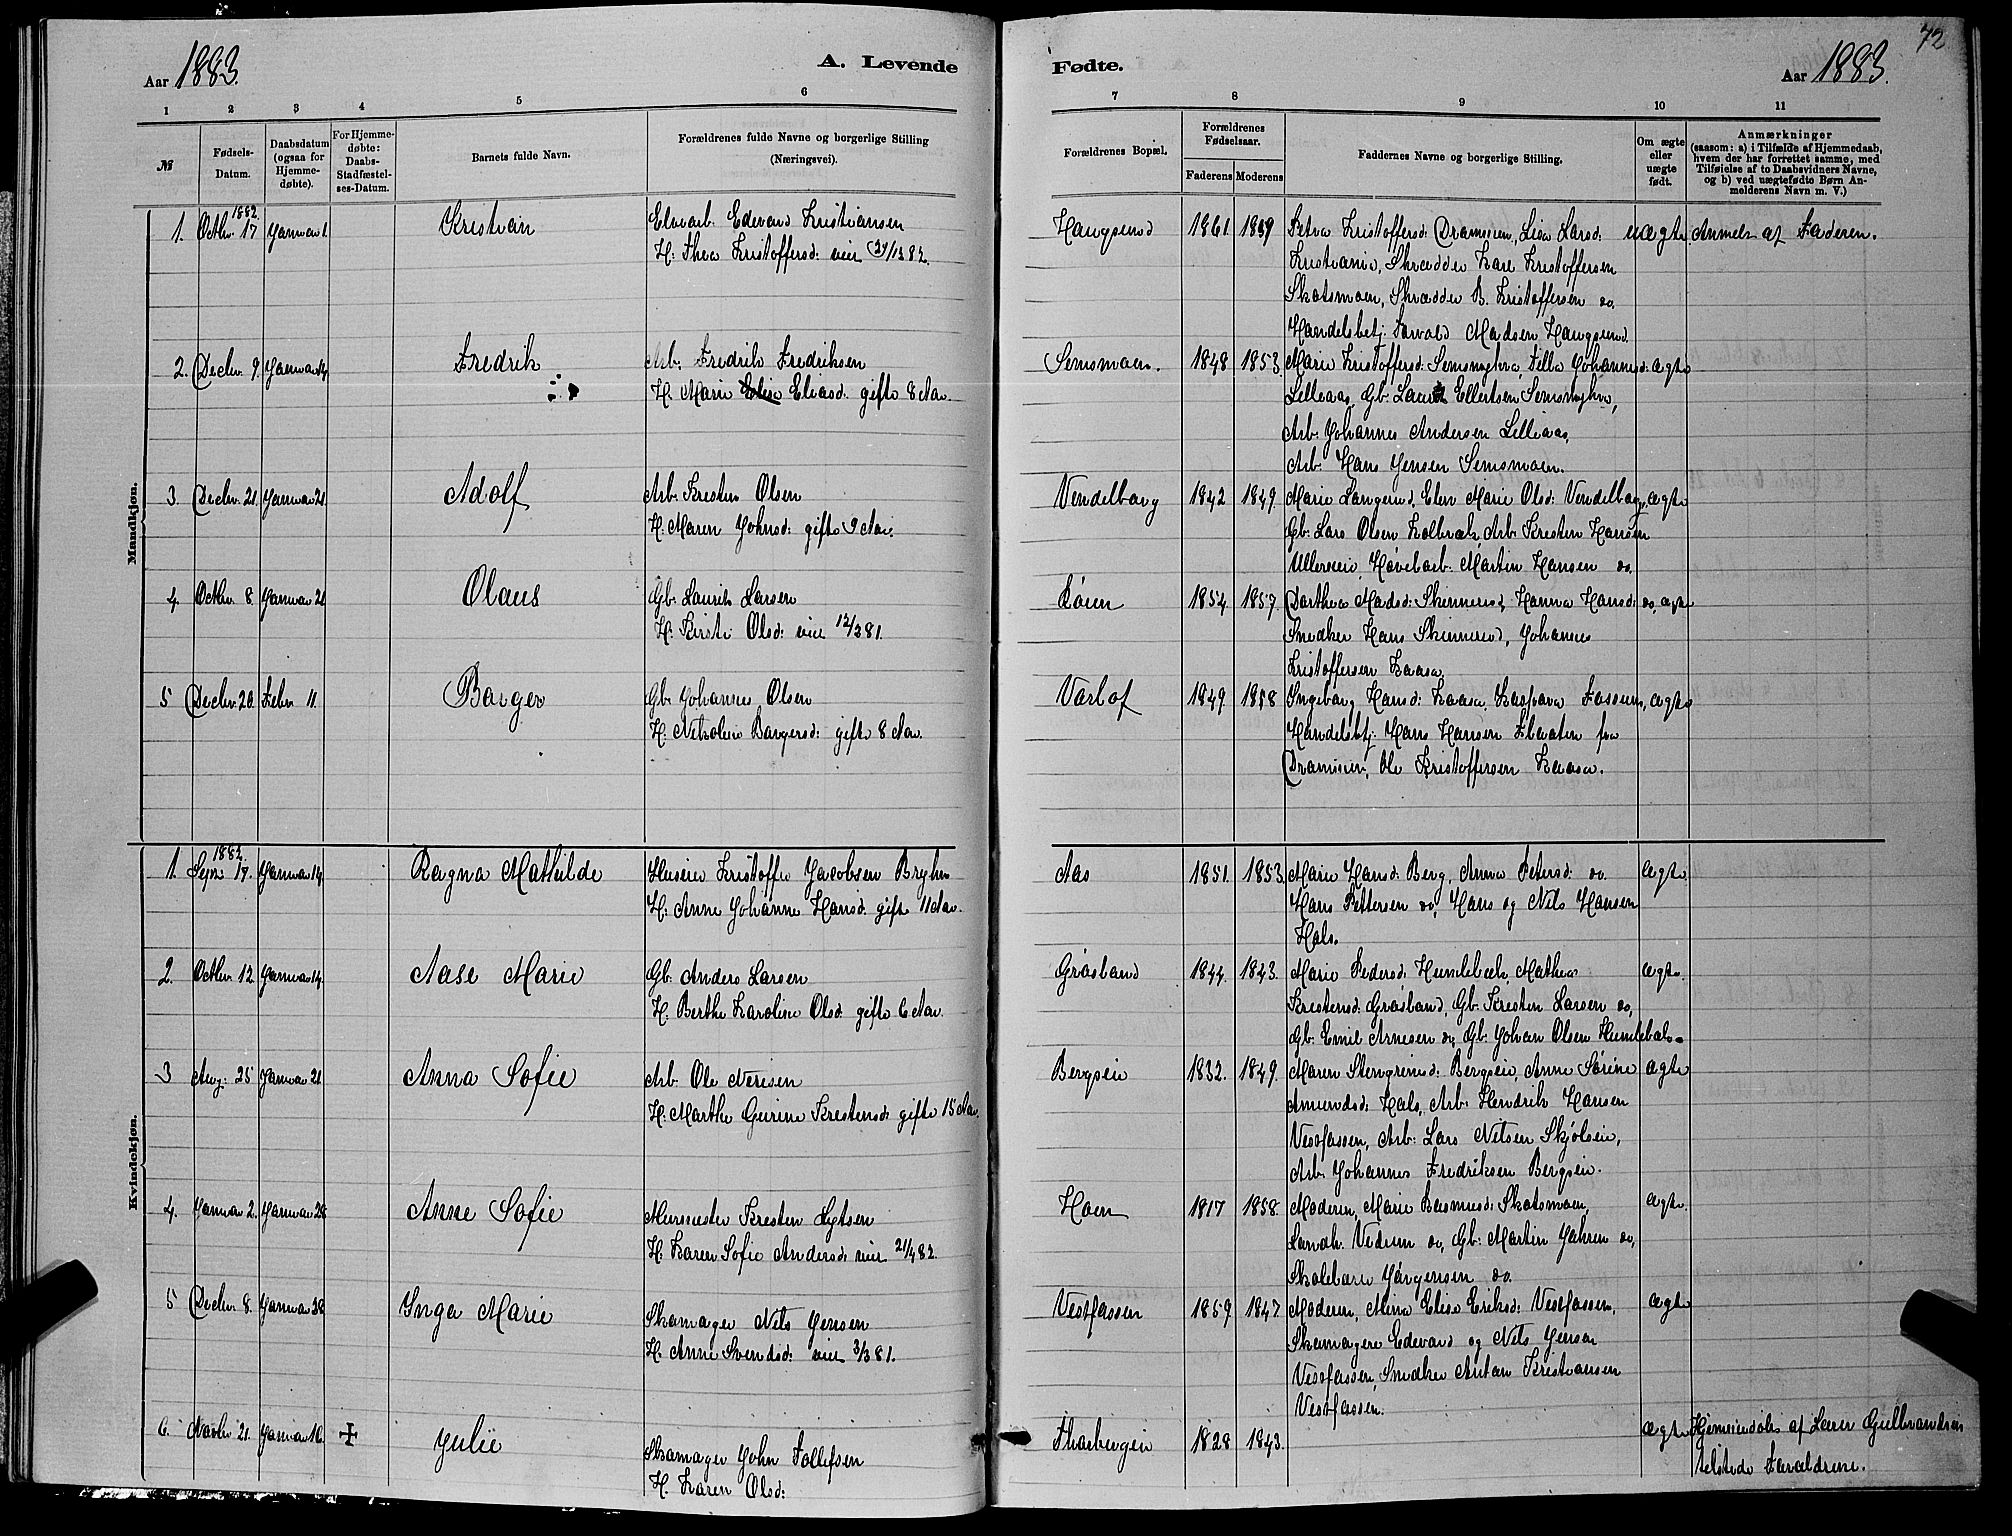 72
Aar 1883.
A. Levende
Fødte.
Aar 1883.
1 2 3 4 5 6
7 8 9 10 11
№
Fødsels-
Datum.
Daabsdatum
(ogsaa for
Hjemme-
døbte).
For Hjemme-
døbte:
Daabs-
Stadfæstel-
ses-Datum.
Barnets fulde Navn.
Forældrenes fulde Navne og borgerlige Stilling
(Næringsvei).
Forældrenes Bopæl.
Forældrenes
Fødselsaar.
Faderens Moderens
Faddernes Navne og borgerlige Stilling.
Om ægte
eller
uægte
født.
Anmærkninger
(saasom: a) i Tilfælde af Hjemmedaab,
hvem der har forrettet samme, med
Tilføielse af to Daabsvidners Navne,
og b) ved uægtefødte Børn An-
melderens Navn m. V.)
Mandkjøn.
1882
1. Octbr. 17 Januar 1. Kristian Edevard Kristiansen Haugsund 1861 1859 Petra Kristoffersd: Drammen, Lina Larsd: uægte Anmeldt af Faderen.
H: Thea Kristoffersd: viet 29/12 82.
Kristiania, Skrædder Karl Kristoffersen
Skotsmoen, Skrædder B. Kristoffersen do.
Handelsbetj. Torvald Madsen Haugsund.
2. Decbr. 9. Januar 14 Fredrik Arb. Fredrik Fredriksen Semsmoen. 1848 1853. Marie Kristoffersd: Johannesd: ægte
H. Marie Elise Eliasd: gifte 8 Aar.
Lilleaas, Gb. Ellertsen
Arb. Johannes Andersen Lilleaas,
Arb. Hans Jensen Semsmoen.
3. Decbr. 21. Januar 21. Adolf Arb. Kresten Olsen Vendelborg 1842 1849. Marie Langerud, Elen Marie Olsd: Vendelborg, ægte
H. Maren Johnsd: gifte 9 Aar.
Gb. Lars Olsen Kolbræk, Arb. Kresten Hansen
Ullerseie, Høvelarb. Martin Hansen do.
4. Octbr. 8. Januar 21 Olaus Gb. Laurits Larsen 1854 1857. Dorthea Madsd: Skinnerud, Hanna Hansd: do, ægte
H. Kirsti Olsd: viet 12/3 81.
Snedker Hans Skinnerud, Johannes
Kristoffersen Kaasa.
5 Decbr. 20. Febr. 11. Borger Gb. Johannes Olsen Varlof 1849. 1858 Ingeborg Hansd: Kaasa, Fossum, ægte
H. Nikoline Borgersd: gifte 8 Aar.
Handelsbtj. Hans Hansen Flaaten fra
Drammen, Ole Kristoffersen Kaasa.
Kvindekjøn.
1882
1. Sept. 17. Januar 14 Ragna Mathilde Kristoffer Jacobsen Aas 1851. 1853. Marie Hansd: Berg, Anna Petersd: do. ægte
H: Anne Johanne Hansd. gifte 11 Aar.
Hans Pettersen do, Hans og Nils Hansen
Hals.
2. Octbr. 12. Januar 14. Aase Marie Gb. Anders Larsen Grøsland 1844. 1843. Marie Pedersd: Humlebæk, Mathea ægte.
H: Berthe Karoline Olsd. gifte 6 Aar.
Krestensd: Grøsland, Gb. Kresten Larsen do,
Gb. Emil Arnesen do, Gb. Johan Olsen Humlebæk.
3 Aug: 25 Januar 21. Anna Sofie Arb. Ole Bergseie 1832. 1849. Maren Stengrimsd: Bergseie, Anne Sørine ægte
H. Marthe Gurine Krestensd: gifte 15 Aar.
Amundsd: Hals, Arb. Hendrik Hansen
Vestfossen, Arb: Lars Nilsen Skjølseie,
Arb. Johannes Fredriksen Bergseie.
4. Januar 2. Januar 28 Anne Sofie Murmester Kresten Hoen 1817 1858. Moderen, Marie Rasmusd: Skotsmoen, ægte.
H. Karen Sofie Andersd: viet 21/4 82.
Landh. Vedrum do, Gb: Martin do,
Skolelærer Jørgensen do.
5 Decbr. 8. Januar 28. Inga Marie Skomager Nils Jensen Vestfossen 1859. 1847. Moderen, Mina Elise Eriksd: Vestfossen, ægte
H. Anne Svendsd: viet 3/3 81.
Skomagere Edevard og Nils Jensen
Vestfossen, Snedker Anton Kristiansen
Vestfossen.
6. Novbr. 21. Januar 16. Julie Skomager John Tollefsen 1828 1843. ægte Hjemmedøbt af Lærer Gulbrandsen
H. Karen Olsd:
tilstede Forældrene.